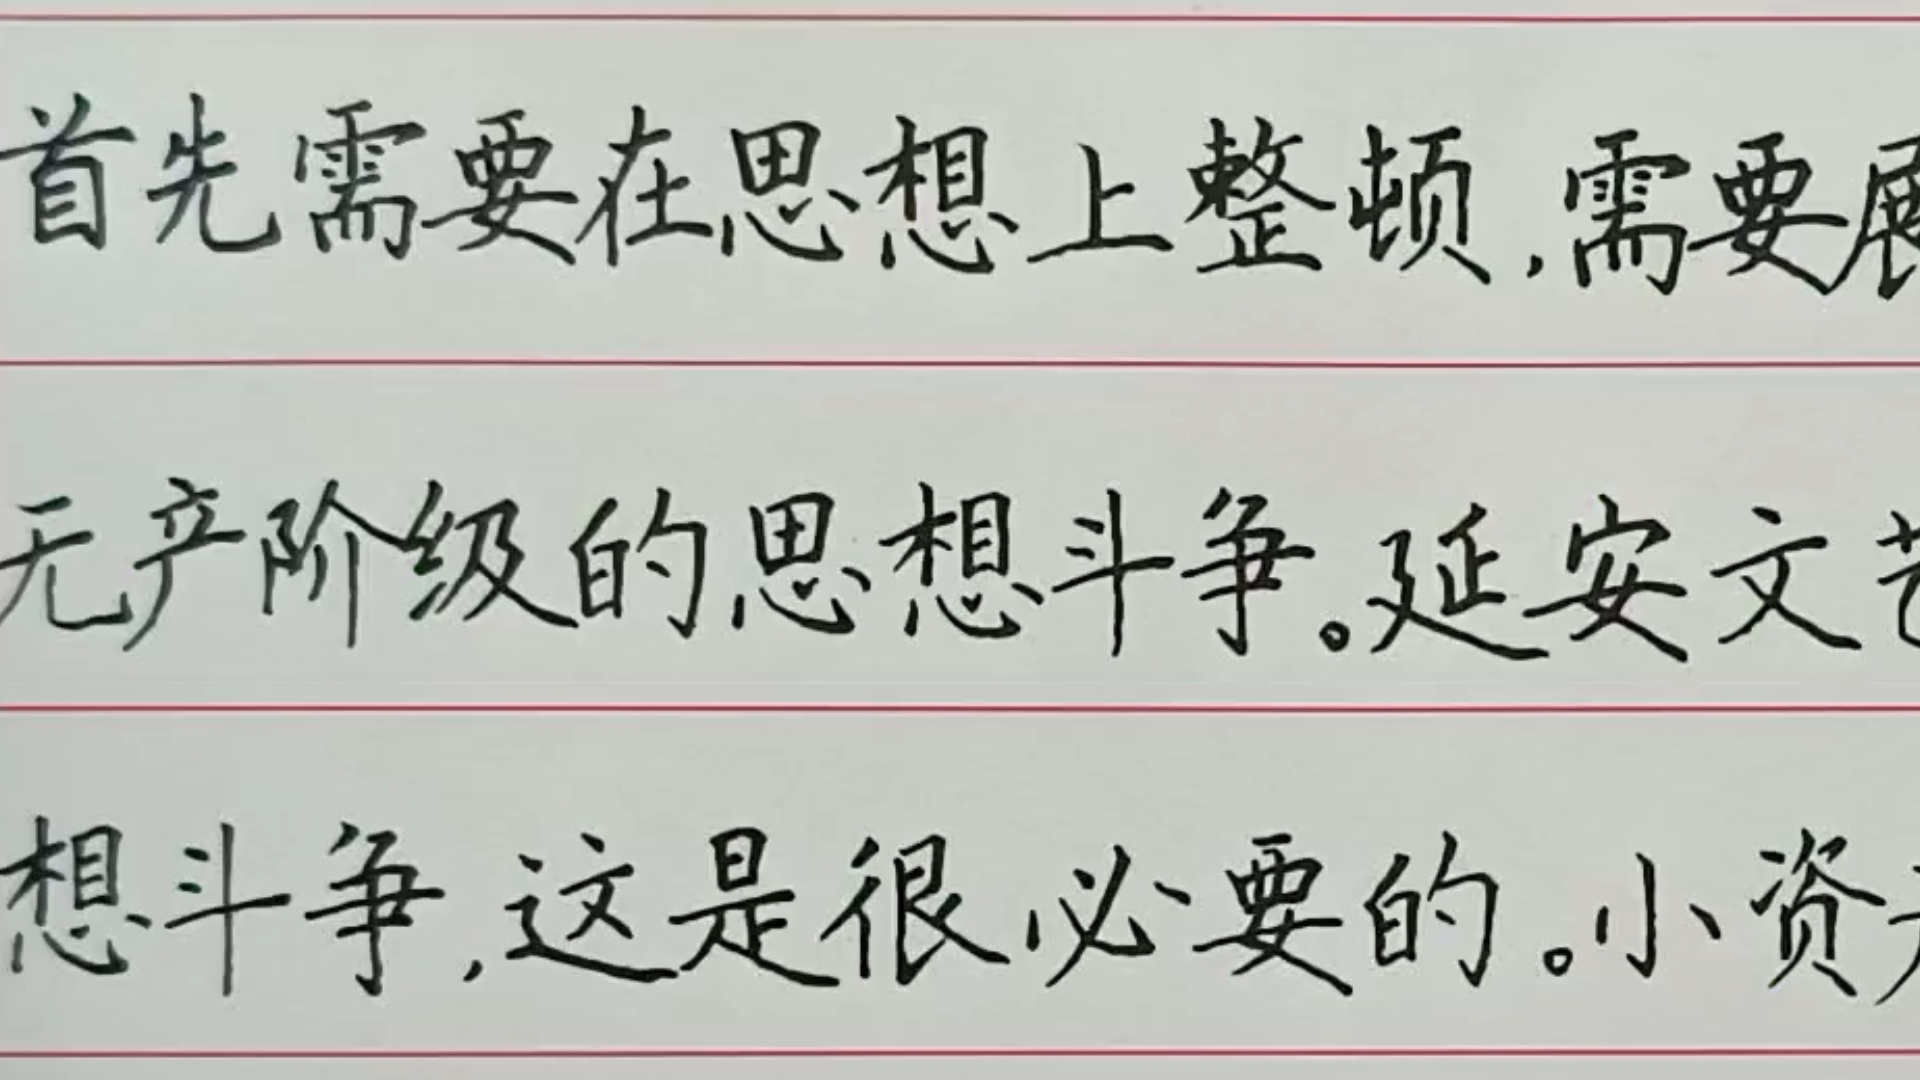 首先需要在思想上整顿,需要展
无产阶级的思想斗争。延安文艺
想斗争,这是很必要的。小资产